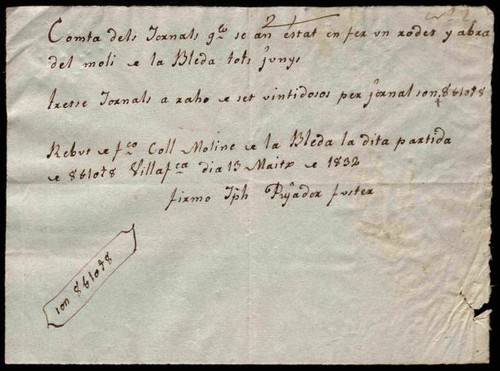 Comta dels Jornals q̃e se an estat en fer un rodet y abra
del moli de la Bleda tots junys
Tretse Jornals a raho de set vintidosos per jornal son
Rebut de f.co Coll Moline de la Bleda la dita partida
de Villaf.ca dia 13 Maitx de 1832
firmo Jph Pujador fuster
son